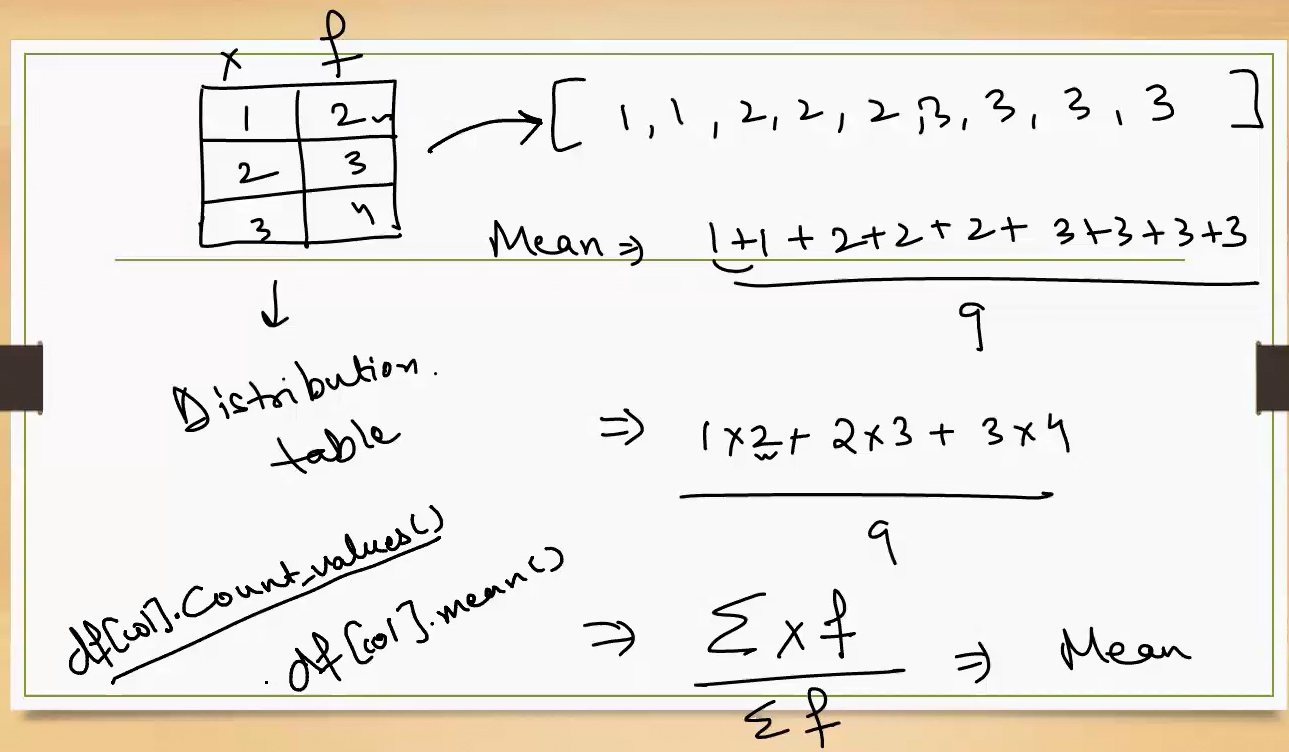 x f
1 2
2 3
3 4
→ [ 1, 1, 2, 2, 2, 3, 3, 3, 3 ]
Mean ⇒ 1+1+2+2+2+3+3+3+3
9
↓
Distribution
table
⇒ 1×2+2×3+3×4
9
df[col].Count_values()
df[col].mean()
⇒ Σxf ⇒ Mean
Σf